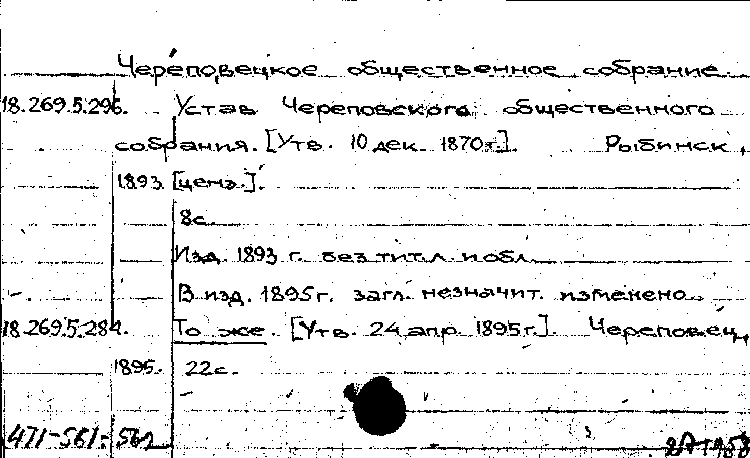 Череповецкое общественное собрание
18.269.5.296. Устав Череповского общественного
собрания. [Утв. 10 дек. 1870г.]. Рыбинск,
1893. [ценз.].
8с.
Изд. 1893 г. без тит. л. и обл.
В изд. 1895г. загл. незначит. изменено.
18.269.5.284. То же. [Утв. 24 апр. 1895г.]. Череповец,
1895. 22с.
471-561-562